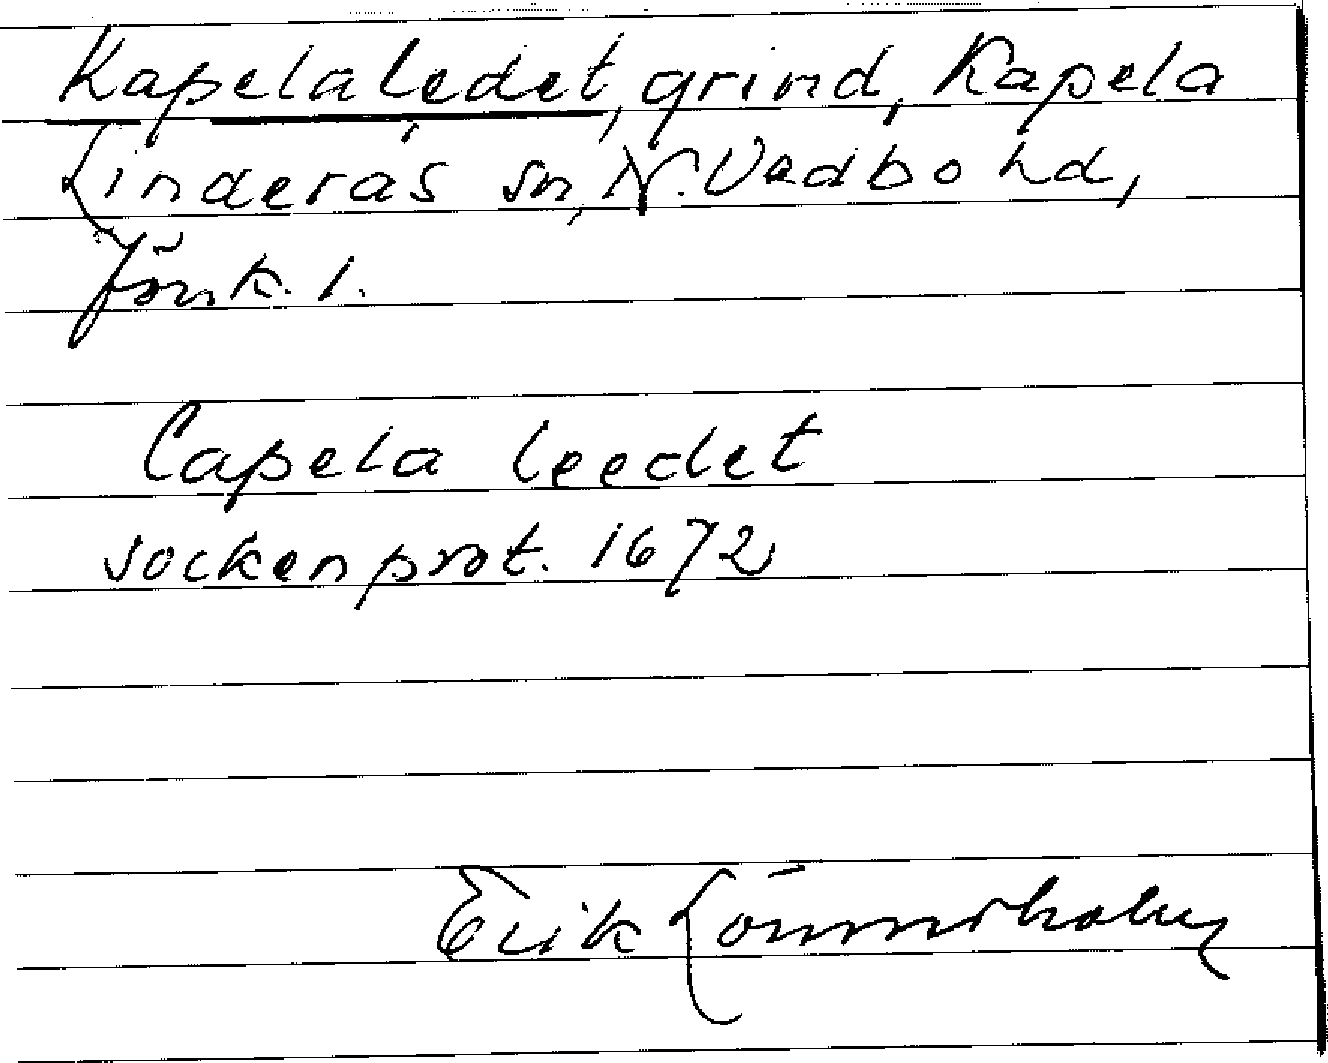 Kapelaledet, grind, Kapela
Linderås sn, N. Vedbo hd,
Jönk. l.
Capela leedet
sockenprot. 1672
Erik Lönnerholm